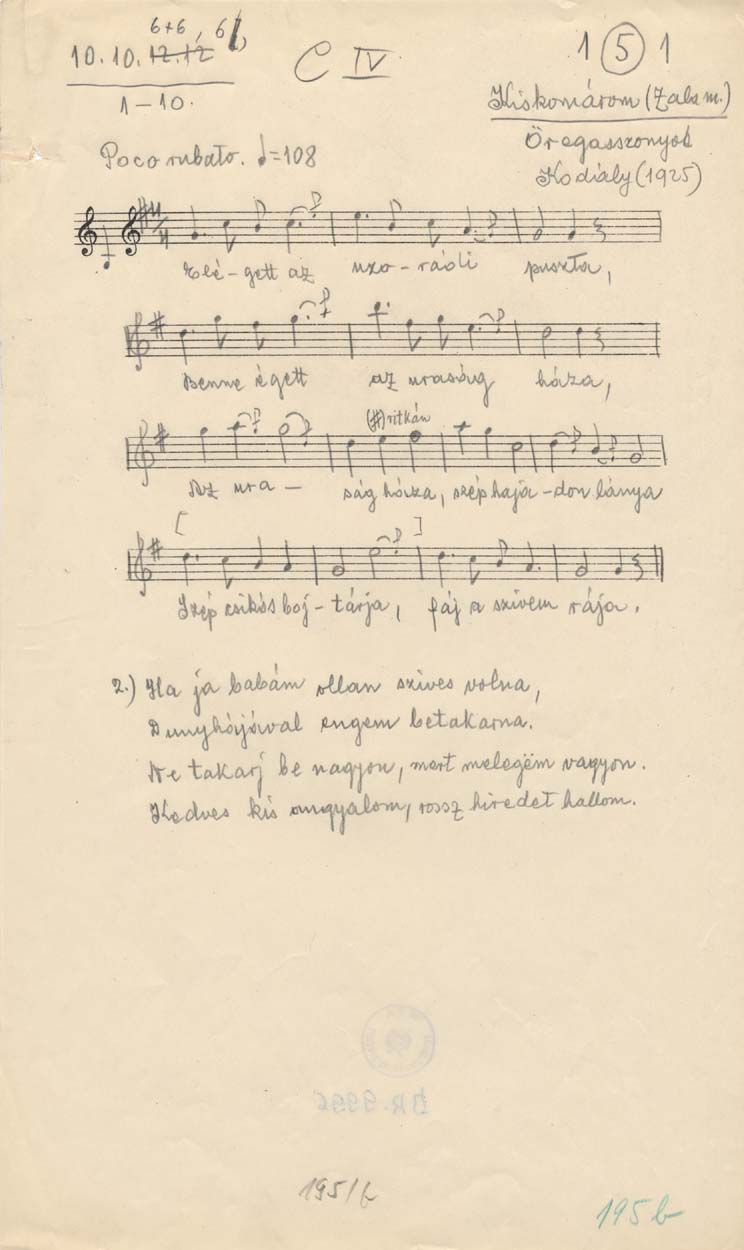 6+6, 6
10.10. 12.12
1-10.
C IV.
1 5 1
Kiskomárom (Zala m.)
Öregasszonyok
Kodály (1925)
Poco rubato. ♩=108
Elé-gett az uzo-rádi puszta,
Benne égett az uraság háza,
(#) ritkán
Az ura- ság háza, szép haja-don lánya
[ ]
Szép csikós boj-tárja, fáj a szivem rája.
2.) Ha ja babám ollan szives volna,
Dunyhájával engem betakarna.
Ne takarj be nagyon, mert melegëm vagyon.
Kedves kis angyalom, rossz hiredet hallom.
BR. 9996
195/b
195 b